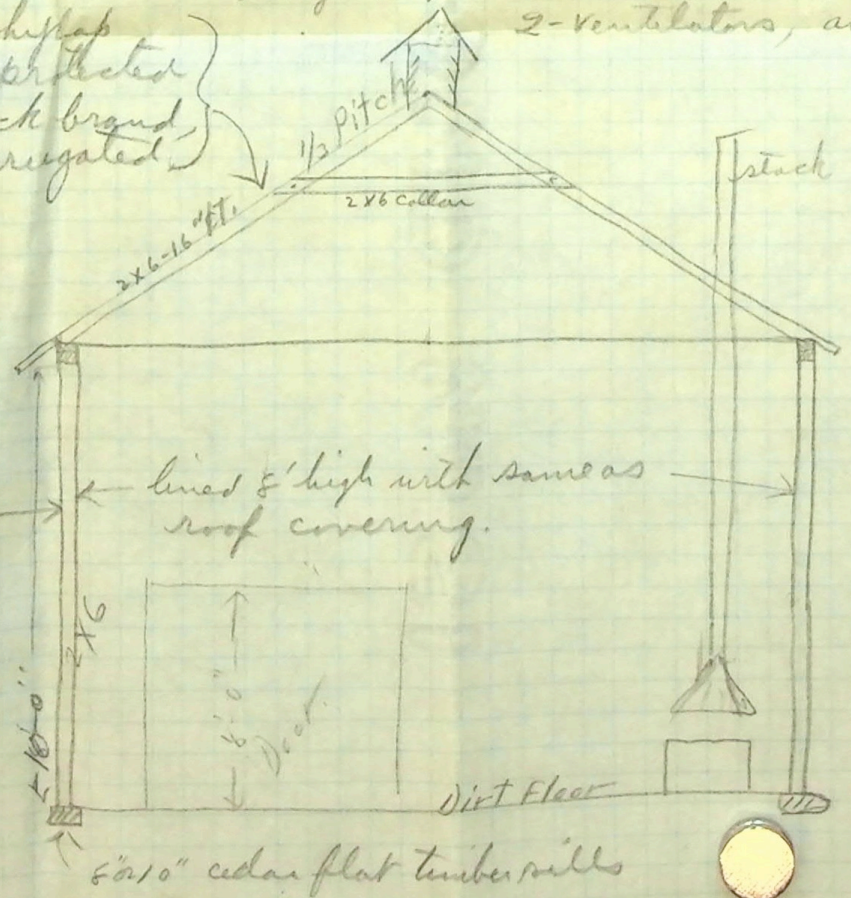 shiplap
protected
ck brand,
rrugated.
2-ventilators, a
1/3 Pitch
stack
2x6 collar
2x6-16" ft.
lined 8' high with same as
roof covering.
2x6
8'-0"
Door.
Dirt Floor
8"x10" cedar flat timber sills